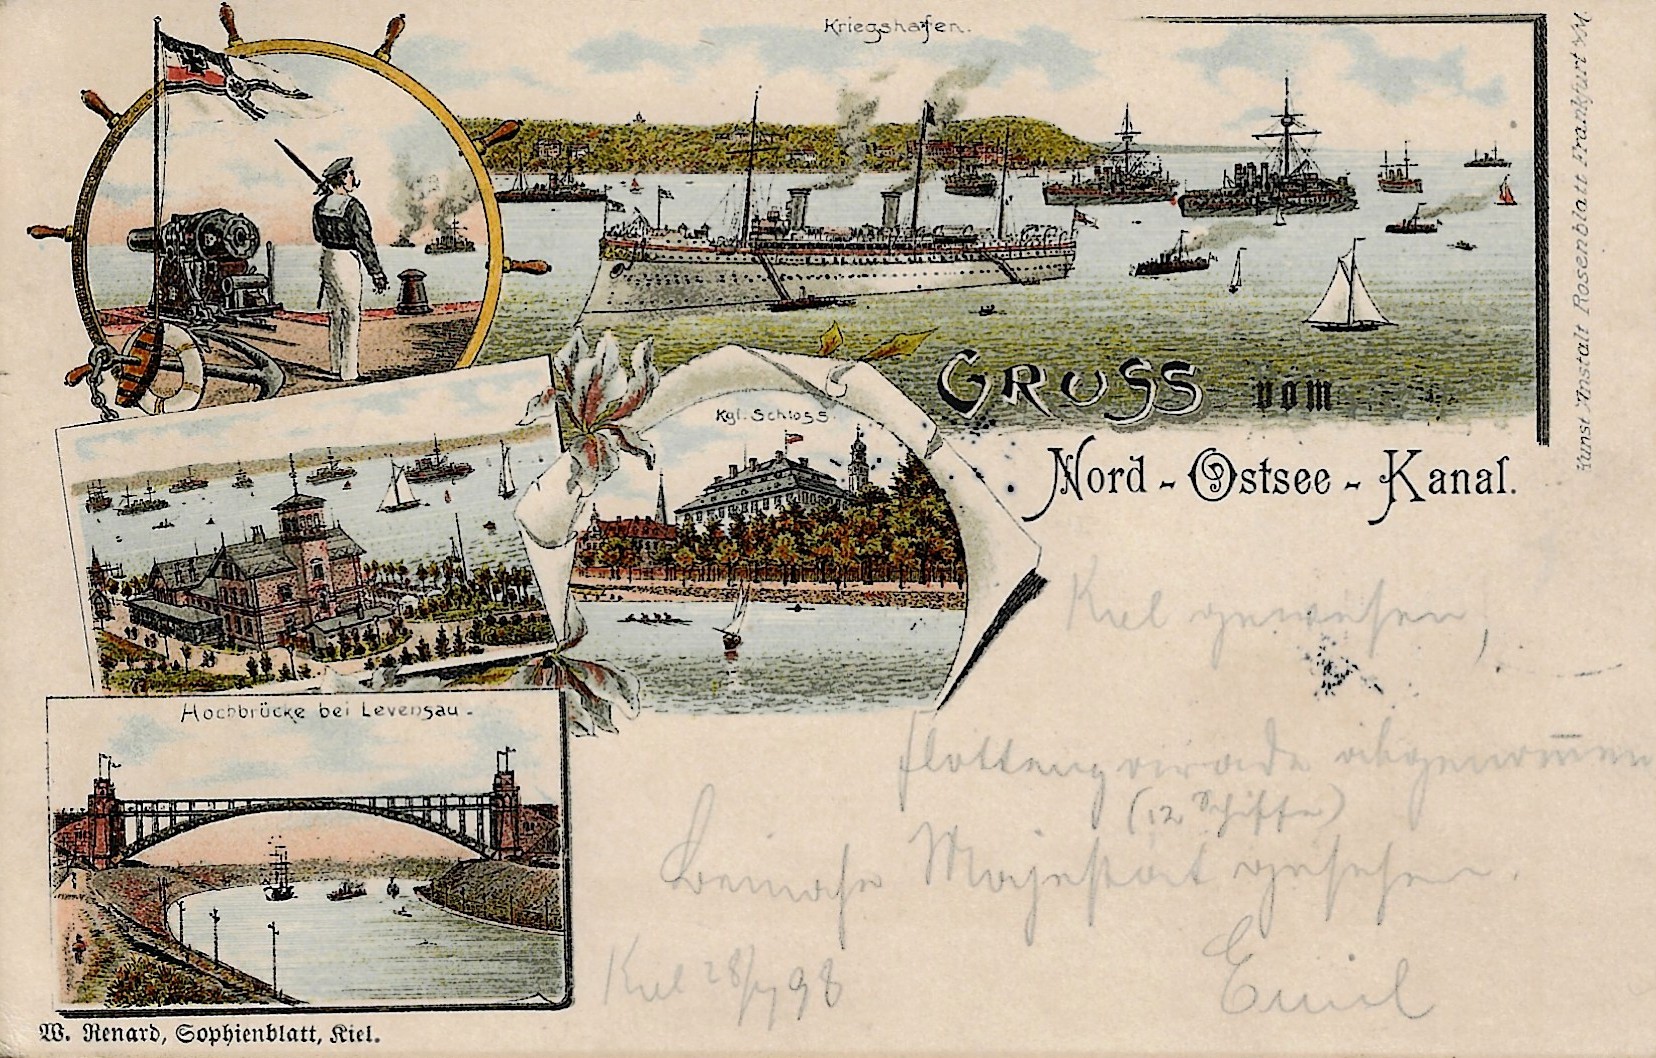 Kriegshafen.
Kunst Anstalt Rosenblatt Frankfurt a/M.
GRUSS vom
Nord-Ostsee-Kanal.
Kgl. Schloss.
Hochbrücke bei Levensau.
Kiel gewesen,
Flottenparade abgenommen
(12 Schiffe)
Beinahe Majestät gesehen.
Emil
Kiel 28/7 98
W. Renard, Sophienblatt, Kiel.